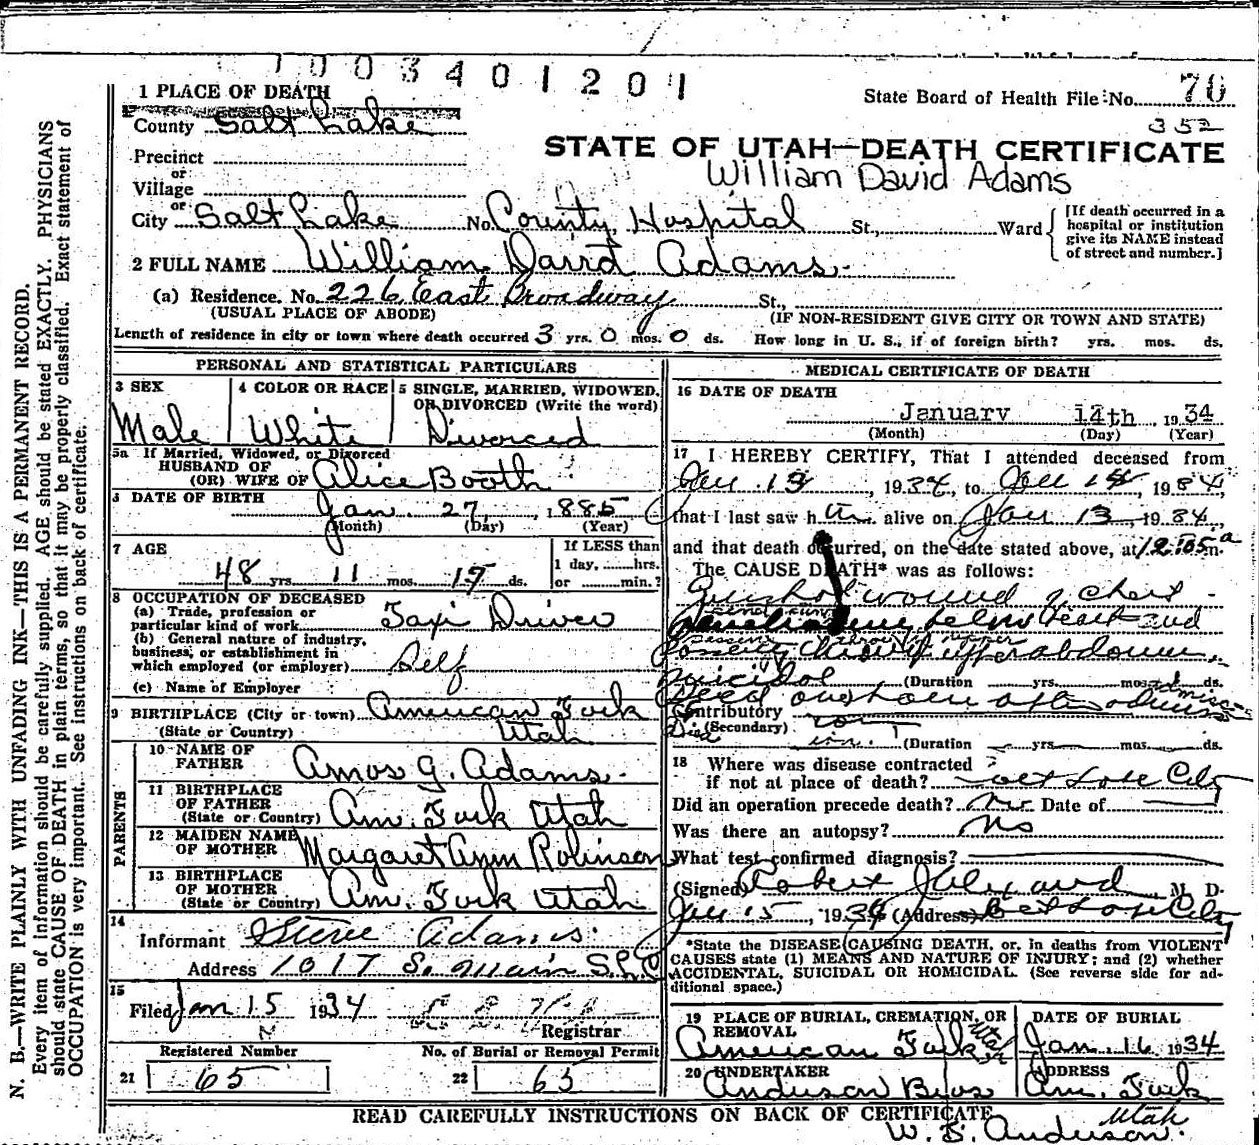 7003401201
1 PLACE OF DEATH
State Board of Health File No. 70
County Salt Lake
352
STATE OF UTAH—DEATH CERTIFICATE
Precinct
or
William David Adams
Village
or
City Salt Lake No. County Hospital St., Ward
[If death occurred in a hospital or institution give its NAME instead of street and number.]
2 FULL NAME William David Adams
(a) Residence. No. 226 East Broadway St.,
(USUAL PLACE OF ABODE) (IF NON-RESIDENT GIVE CITY OR TOWN AND STATE)
Length of residence in city or town where death occurred 3 yrs. 0 mos. 0 ds. How long in U. S., if of foreign birth? yrs. mos. ds.
PERSONAL AND STATISTICAL PARTICULARS
3 SEX 4 COLOR OR RACE 5 SINGLE, MARRIED, WIDOWED, OR DIVORCED (Write the word)
Male White Divorced
5a If Married, Widowed, or Divorced
HUSBAND OF
(OR) WIFE OF Alice Booth
6 DATE OF BIRTH Jan. 27, 1885
(Month) (Day) (Year)
7 AGE If LESS than
1 day, hrs.
48 yrs 11 mos. ds. or min.?
8 OCCUPATION OF DECEASED
(a) Trade, profession or
particular kind of work Taxi Driver
(b) General nature of industry,
business, or establishment in
which employed (or employer) Self
(c) Name of Employer
9 BIRTHPLACE (City or town) American Fork
(State or Country) Utah
PARENTS
10 NAME OF
FATHER Amos G. Adams
11 BIRTHPLACE
OF FATHER
(State or Country) Am. Fork Utah
12 MAIDEN NAME
OF MOTHER Margaret Ann Robinson
13 BIRTHPLACE
OF MOTHER
(State or Country) Am. Fork Utah
14
Informant Steve Adams
Address 1017 S. Main S.L.C
15
Filed Jan 15 1934
Registrar
Registered Number No. of Burial or Removal Permit
21 65 22 65
MEDICAL CERTIFICATE OF DEATH
16 DATE OF DEATH
January 14th 1934
(Month) (Day) (Year)
17 I HEREBY CERTIFY, That I attended deceased from
Jan 13, 1934, to Jan 1934,
that I last saw h alive on Jan 13, 1934,
and that death occurred, on the date stated above, at 12:05 a m.
The CAUSE DEATH* was as follows:
Gunshot wound of chest
heart and
upper abdomen
Suicidal (Duration yrs. mos. ds.
one hour after
Contributory
(Secondary)
(Duration yrs. mos. ds.
18 Where was disease contracted
if not at place of death? Salt Lake City
Did an operation precede death? No Date of
Was there an autopsy? No
What test confirmed diagnosis?
(Signed) Robert M. D.
Jan 15, 1934 (Address) Salt Lake City
*State the DISEASE CAUSING DEATH, or, in deaths from VIOLENT
CAUSES state (1) MEANS AND NATURE OF INJURY; and (2) whether
ACCIDENTAL, SUICIDAL OR HOMICIDAL. (See reverse side for ad-
ditional space.)
19 PLACE OF BURIAL, CREMATION, OR DATE OF BURIAL
REMOVAL
American Fork Utah Jan. 16 1934
20 UNDERTAKER ADDRESS
Anderson Bros Am. Fork
Utah
READ CAREFULLY INSTRUCTIONS ON BACK OF CERTIFICATE
W. B. Anderson.
N. B.—WRITE PLAINLY WITH UNFADING INK—THIS IS A PERMANENT RECORD.
Every item of information should be carefully supplied. AGE should be stated EXACTLY. PHYSICIANS
should state CAUSE OF DEATH in plain terms, so that it may be properly classified. Exact statement of
OCCUPATION is very important. See instructions on back of certificate.